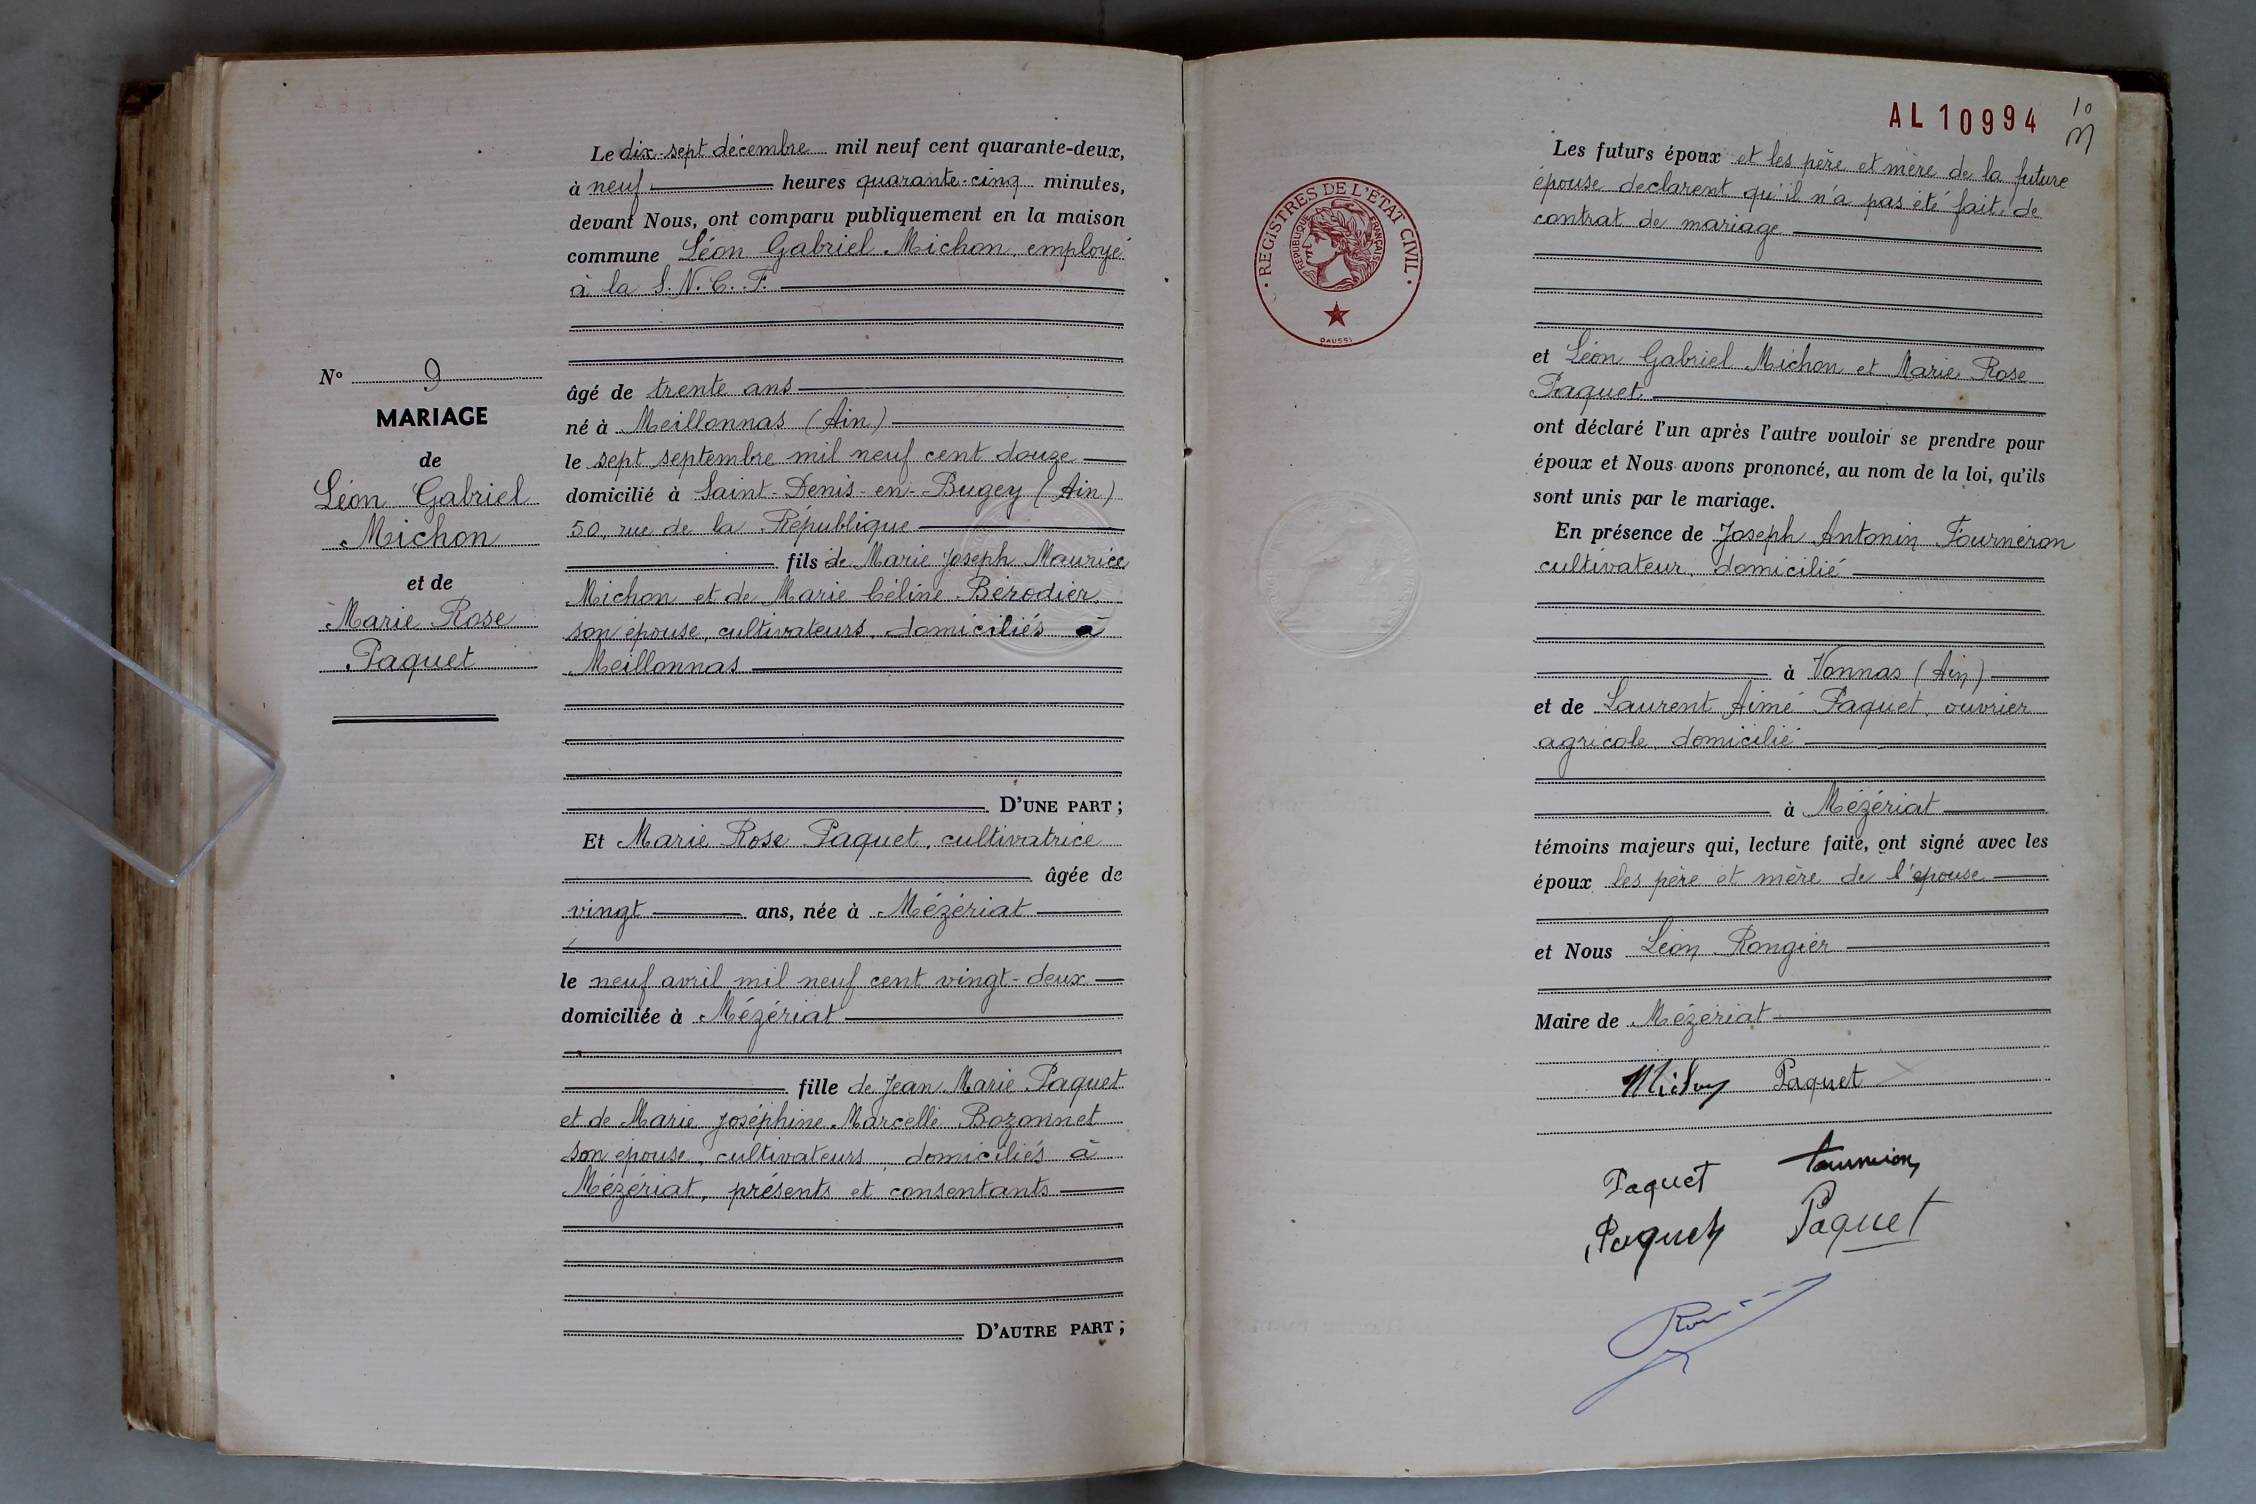 Le dix-sept décembre mil neuf cent quarante-deux,
à neuf heures quarante-cinq minutes,
devant Nous, ont comparu publiquement en la maison
commune Léon Gabriel Michon, employé
à la S.N.C.F.
âgé de trente ans
né à Meillonnas (Ain)
le sept septembre mil neuf cent douze
domicilié à Saint-Denis-en-Bugey (Ain)
50, rue de la République
fils de Marie Joseph Maurice
Michon et de Marie Céline Bérodier,
son épouse, cultivateurs, domiciliés à
Meillonnas
D'UNE PART ;
Et Marie Rose Paquet, cultivatrice
âgée de
vingt ans, née à Mézériat
le neuf avril mil neuf cent vingt-deux
domiciliée à Mézériat
fille de Jean Marie Paquet
et de Marie Joséphine Marcelle Bozonnet
son épouse, cultivateurs, domiciliés à
Mézériat, présents et consentants
D'AUTRE PART ;
N° 9
MARIAGE
de
Léon Gabriel
Michon
et de
Marie Rose
Paquet
AL 10994
10
REGISTRES DE L'ETAT CIVIL
REPUBLIQUE FRANÇAISE
DAUSSI
Les futurs époux et les père et mère de la future
épouse déclarent qu'il n'a pas été fait de
contrat de mariage
et Léon Gabriel Michon et Marie Rose
Paquet
ont déclaré l'un après l'autre vouloir se prendre pour
époux et Nous avons prononcé, au nom de la loi, qu'ils
sont unis par le mariage.
En présence de Joseph Antonin Fournéron
cultivateur, domicilié
à Vonnas (Ain)
et de Laurent Aimé Paquet, ouvrier
agricole, domicilié
à Mézériat
témoins majeurs qui, lecture faite, ont signé avec les
époux les père et mère de l'épouse
et Nous Léon Rongier
Maire de Mézériat
Michon Paquet
Paquet
Paquet Paquet